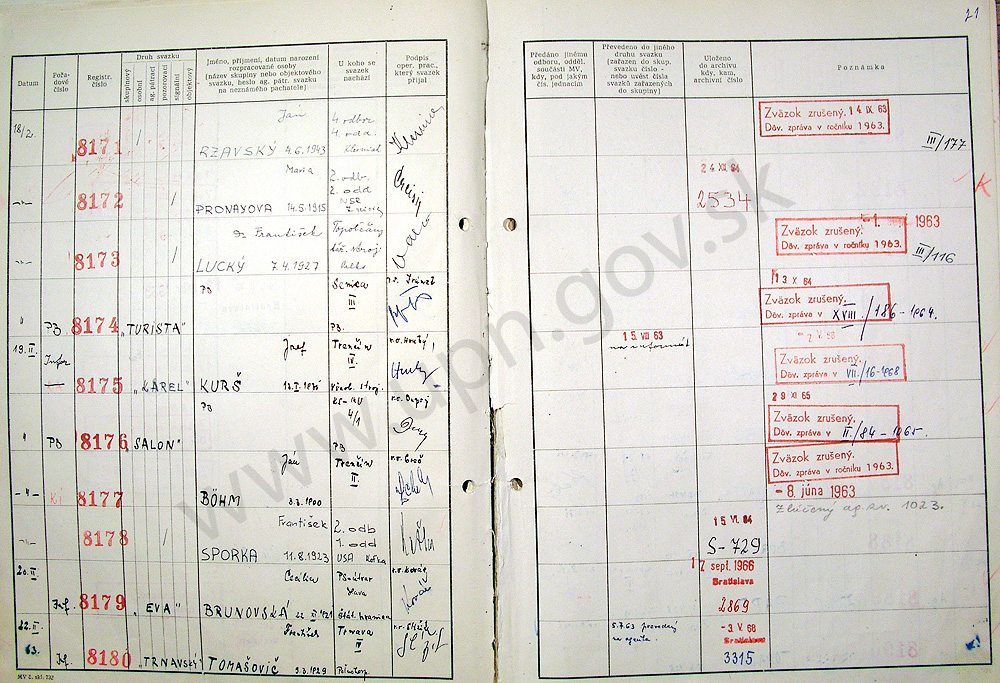 21
Datum
Pořadové číslo
Registr. číslo
Druh svazku
skupinový
osobní
ag. pátrací
pozorovací
signální
objektový
Jméno, příjmení, datum narození
rozpracované osoby
(název skupiny nebo objektového
svazku, heslo ag. pátr. svazku
na neznámého pachatele)
U koho se
svazek
nachází
Podpis
oper. prac.,
který svazek
přijal
Předáno jinému
odboru, odděl.
součásti MV,
kdy, pod jakým
čís. jednacím
Převedeno do jiného
druhu svazku
(zařazen do skup.
svazku číslo -
nebo uvést čísla
svazků zařazených
do skupiny)
Uloženo
do archivu
kdy, kam,
archivní číslo
Poznámka
18/2.
8171
Jan
RZAVSKÝ 4.6.1943
4. odbor
Zväzok zrušený. 14 IX 63
Dôv. zpráva v ročníku 1963.
III/177
8172
Maria
PRONAYOVA 14.5.1915
2. odb.
2. odd
24 XII 64
2534
8173
Dr František
LUCKÝ 7.4.1927
Topolčany
Zväzok zrušený. -1. 1963
Dôv. zpráva v ročníku 1963.
III/116
PZ
8174
„TURISTA"
PZ
Senica
III
PZ.
13 X 64
Zväzok zrušený.
Dôv. zpráva v XVIII./186-1964.
19.II.
Infor
8175
„KAREL"
Jozef
KURŠ
Trenčín
IV.
15 VII 63
Zväzok zrušený.
Dôv. zpráva v VII./16-1968
PZ
8176
„SALON"
PZ
4/1
PZ
29 XI 65
Zväzok zrušený.
Dôv. zpráva v II./84-1965.
8177
Ján
BÖHM
Trenčín
II.
Zväzok zrušený.
Dôv. zpráva v ročníku 1963.
- 8. júna 1963
8178
František
SPORKA 11.8.1923
2. odb
1. odd
USA
15 VI. 64
S-729
Zlúčený ag. sv. 1023.
20.II
Inf.
8179
„EVA"
Cecília
BRUNOVSKÁ
17 sept. 1966
Bratislava
2869
22.II
63.
Inf.
8180
„TRNAVSKÝ"
František
TOMAŠOVIČ 9.3.1929
Trnava
IV
5.7.63 prevedený
na agenta.
-3 V. 68
Bratislava
3315
MV č. skl. 732
www.upn.gov.sk